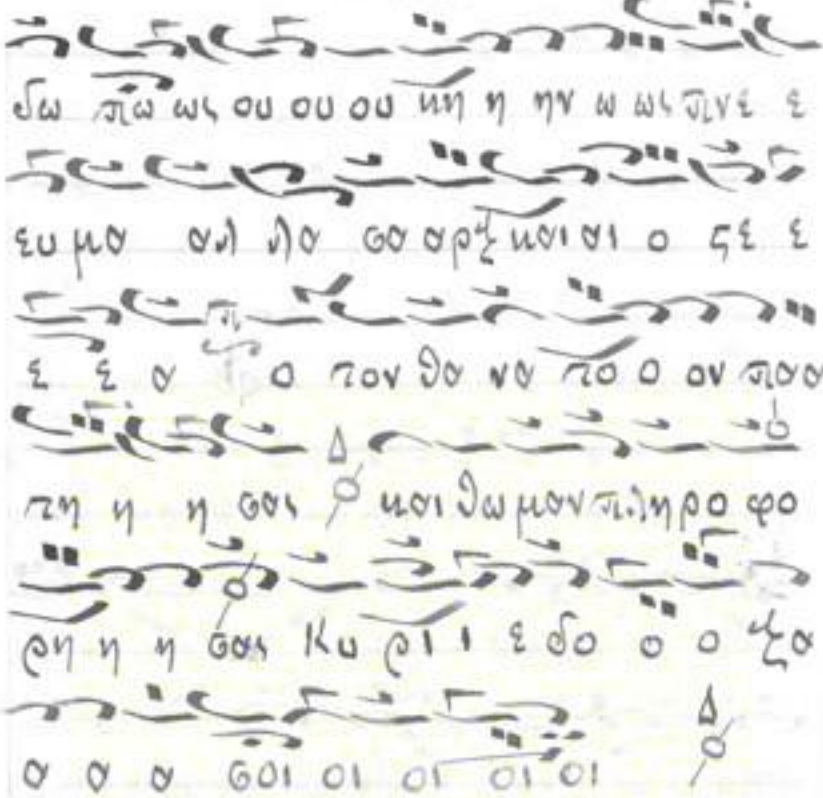 δω πω ως ου ου ου κη η ην ω ως πνε ε
ευ μα αλ λα σα αρξ και αι ο ςε ε
ε ε α ο τον θα να το ο ον πα α
τη η η σας και θω μαν πλη ρο φο
ρη η η σας Κυ ρι ι ε δο ο ο ξα
α α α σοι οι οι οι οι